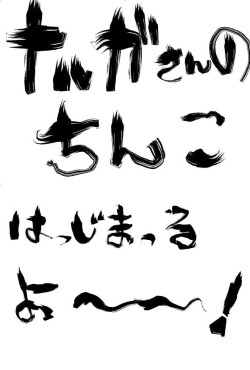 ナルガさんの
ちんこ
はっじまっる
よ〜〜!